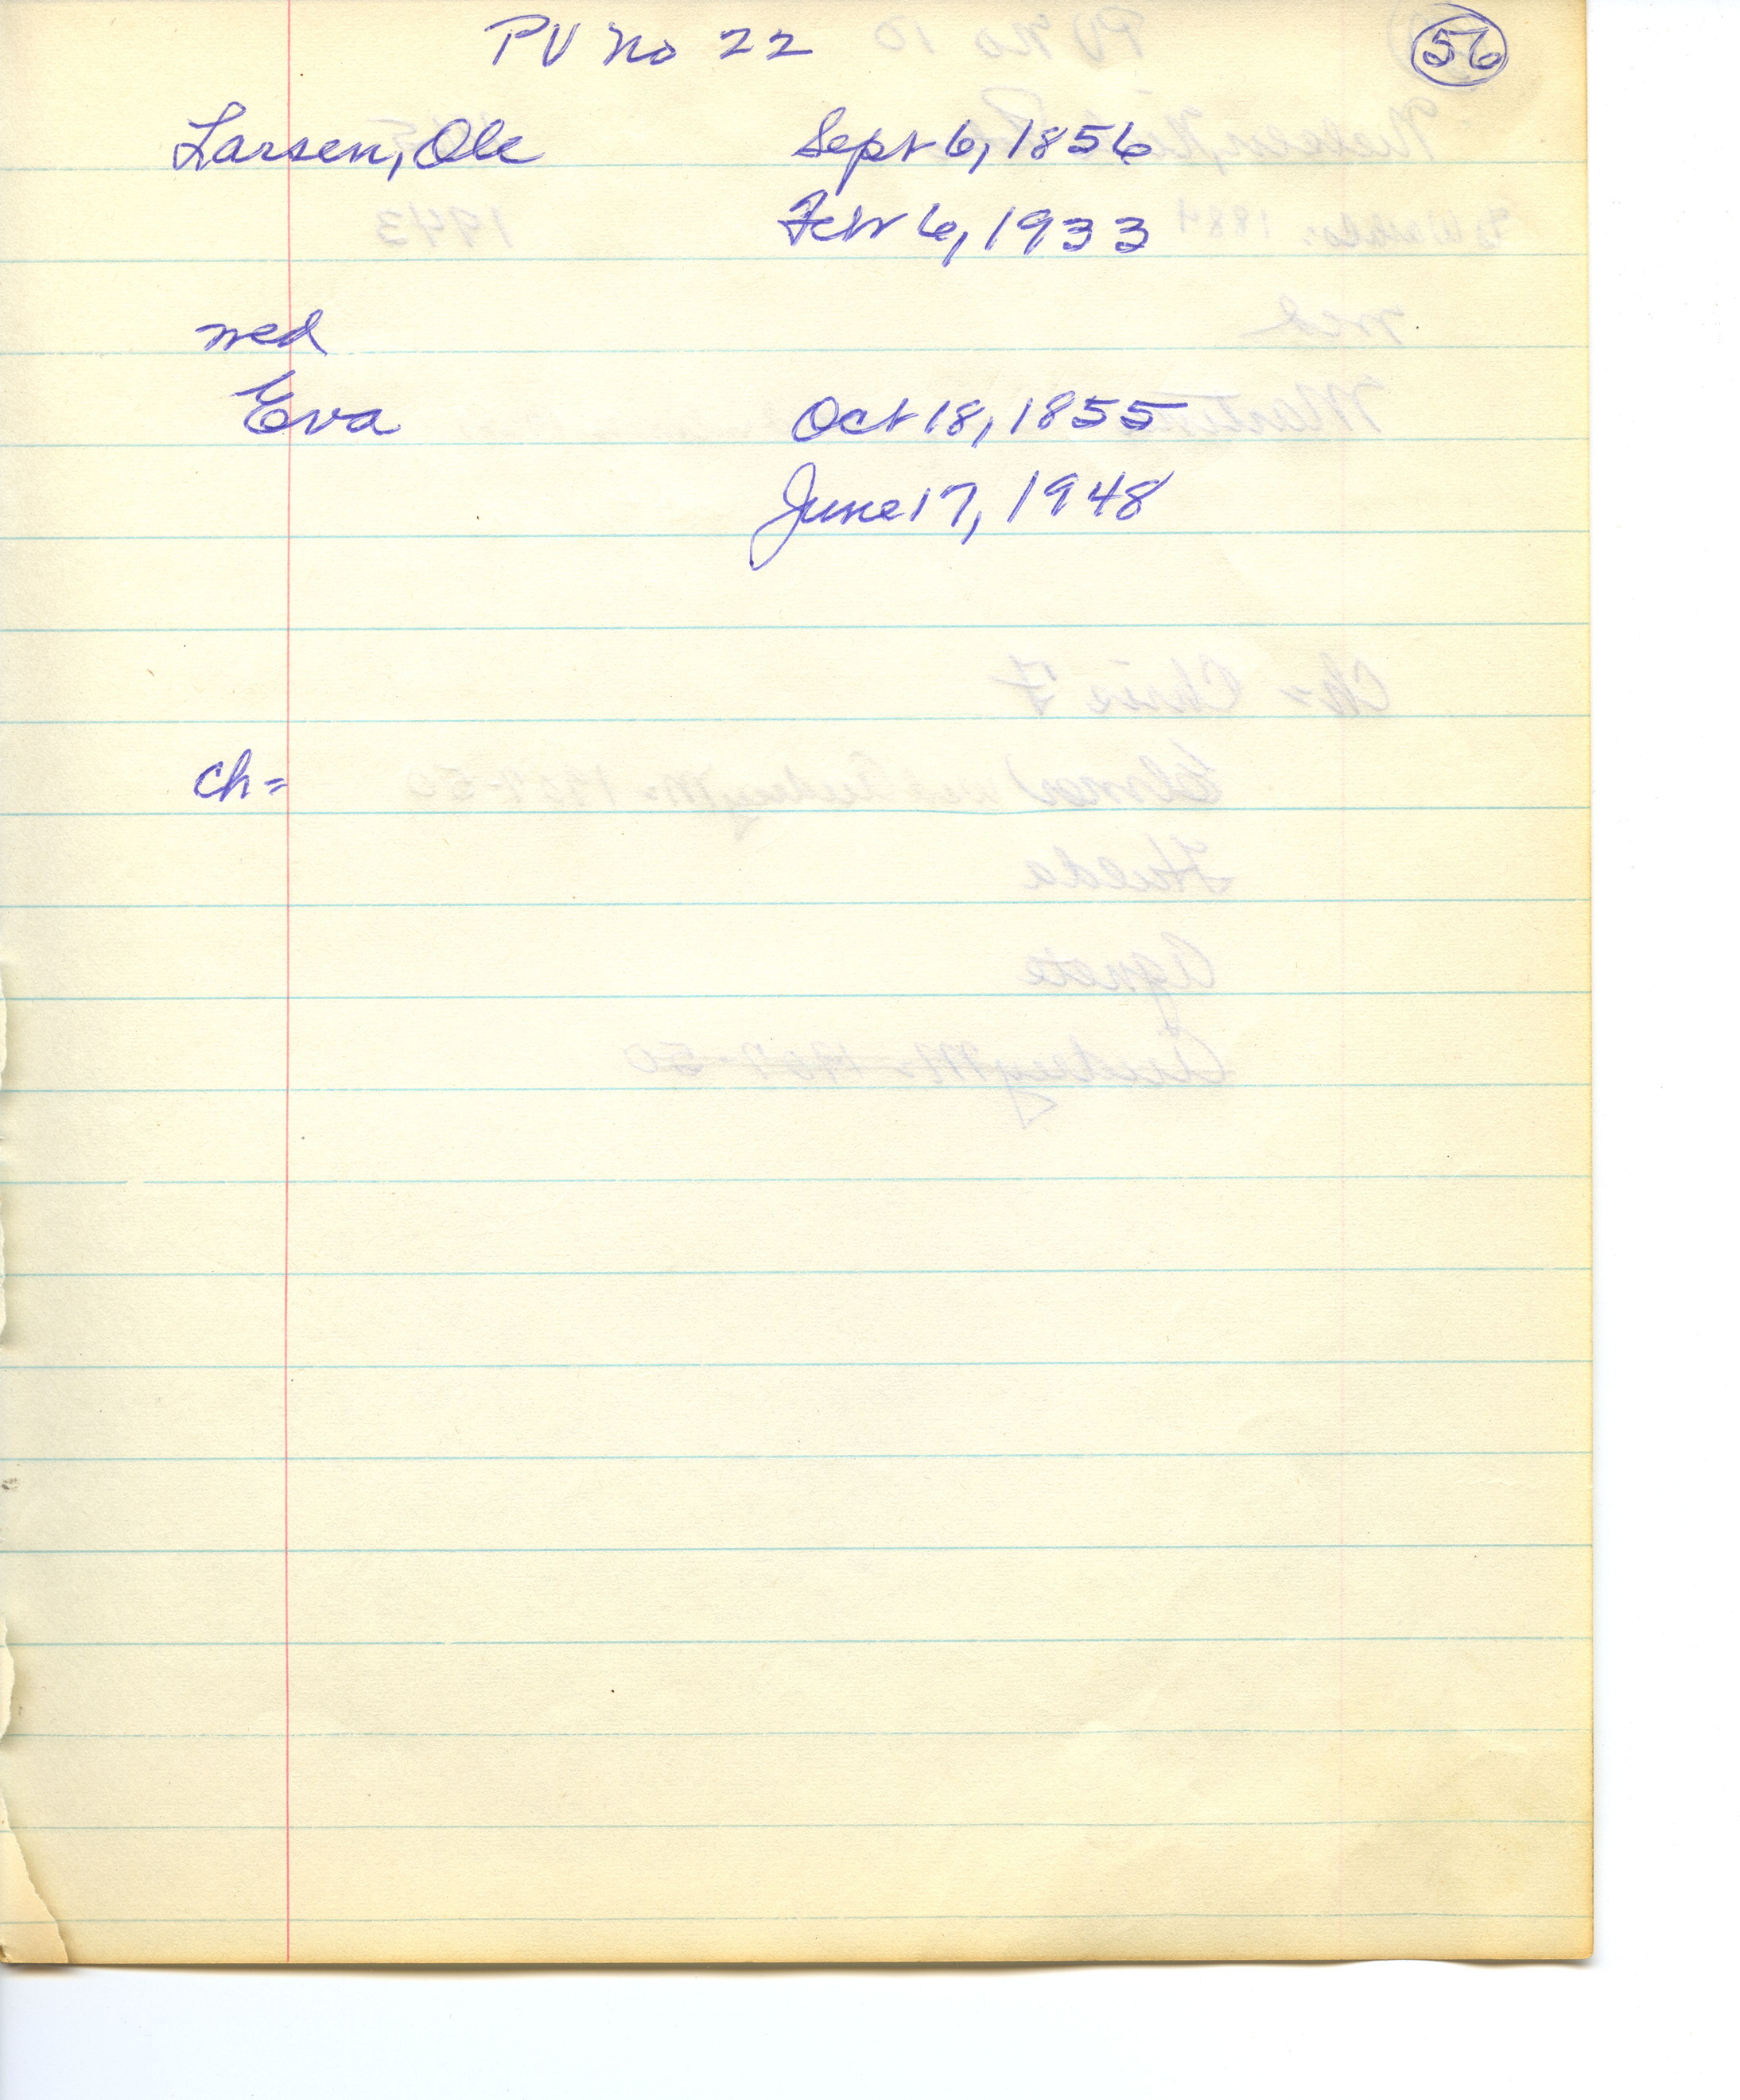 PV no 22 56
Larsen, Ole Sept 6, 1856
Feb 6, 1933
wed
Eva Oct 18, 1855
June 17, 1948
ch=